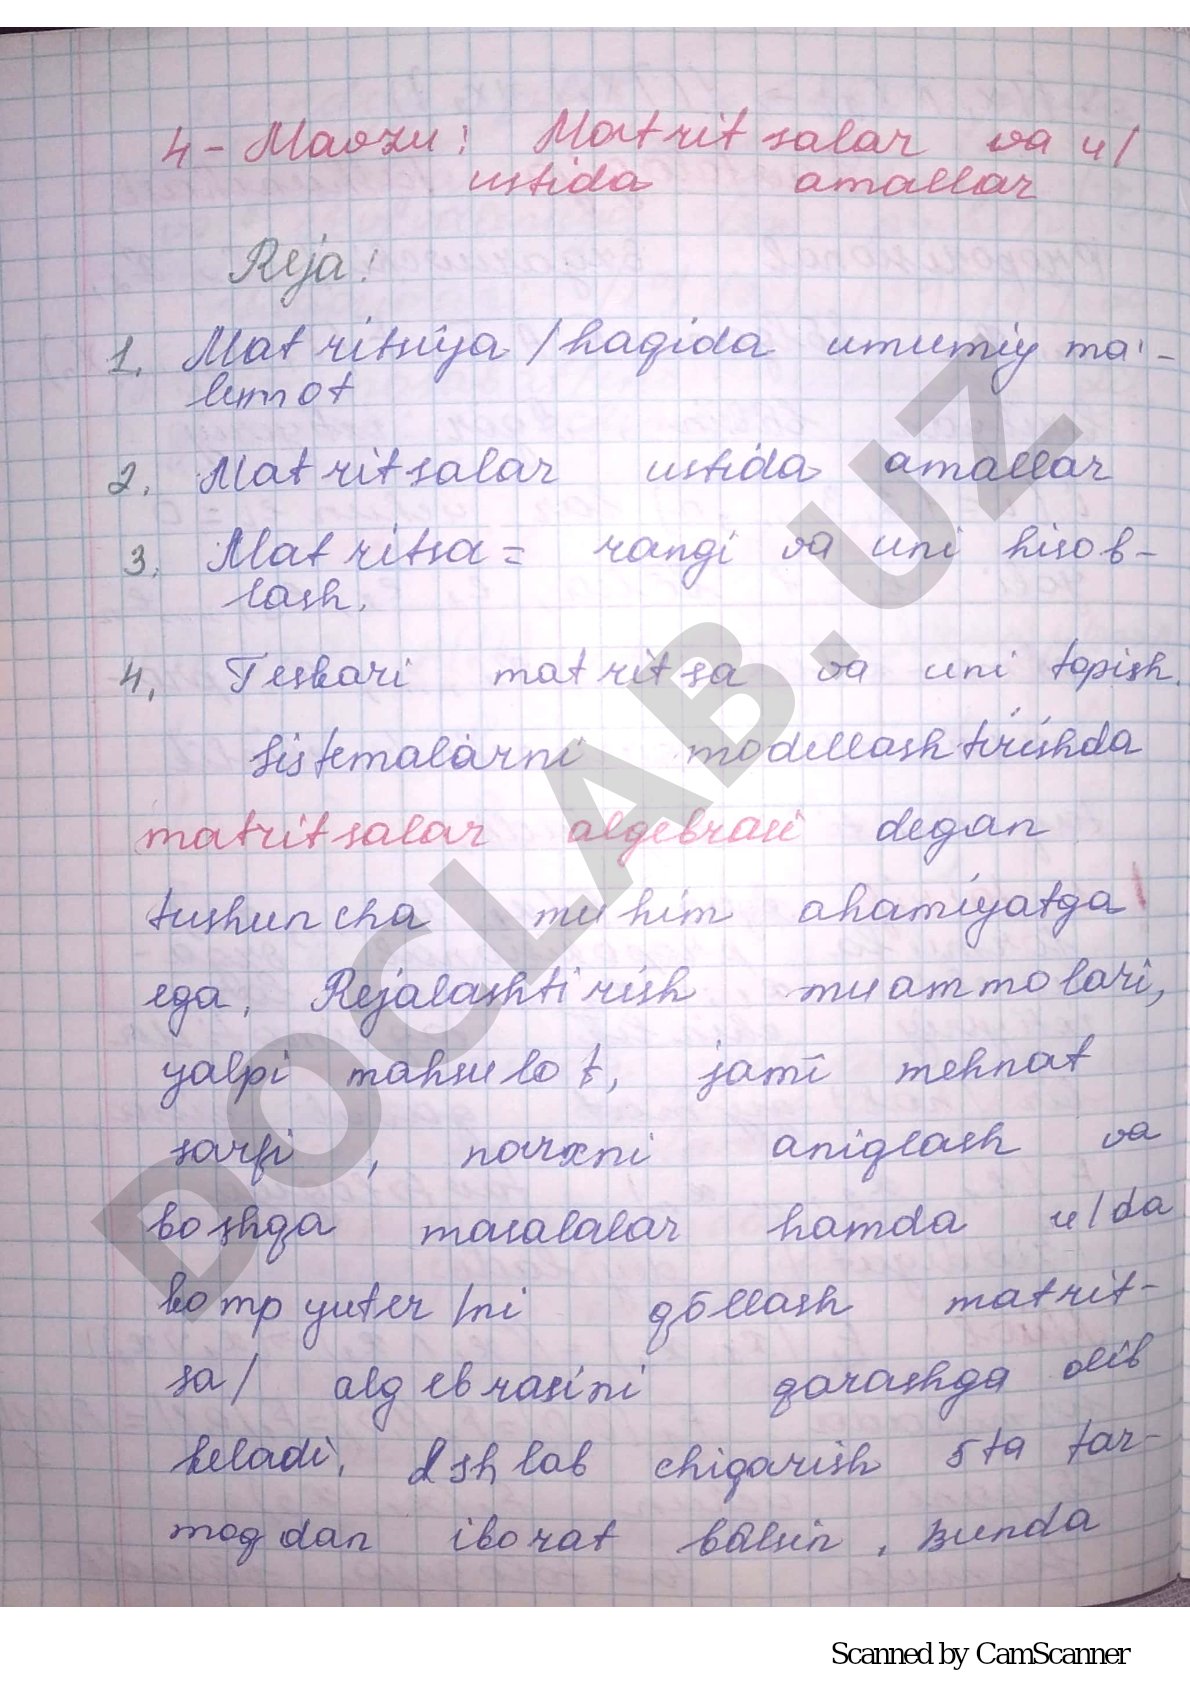 4 - Mavzu: Matritsalar va u/
ustida amallar
Reja:
1. Matritsiya /haqida umumiy ma'-
lumot
2. Matritsalar ustida amallar
3. Matritsa = rangi va uni hisob-
lash.
4. Teskari matritsa va uni topish.
Sistemalarni modellashtirishda
matritsalar algebrasi degan
tushuncha muhim ahamiyatga
ega. Rejalashtirish muammolari,
yalpi mahsulot, jami mehnat
sarfi, narxni aniqlash va
boshqa masalalar hamda u/da
kompyuter/ni qōllash matrit-
sa/ algebrasini qarashga olib
keladi. Ishlab chiqarish 5ta tar-
moqdan iborat bōlsin. Bunda
DOCLAB.UZ
Scanned by CamScanner